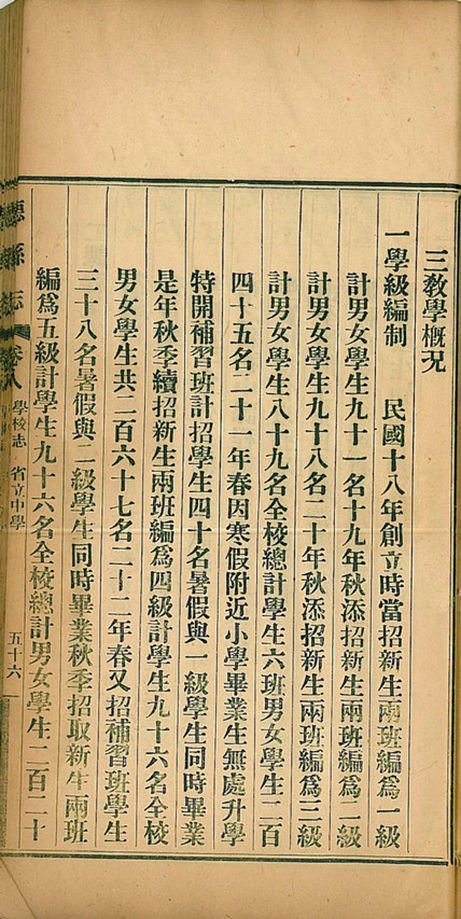 三敎學概況
一學級編制　　民國十八年創立時當招新生兩班編爲一級
計男女學生九十一名十九年秋添招新生兩班編爲二級
計男女學生九十八名二十年秋添招新生兩班編爲三級
計男女學生八十九名全校總計學生六班男女學生二百
四十五名二十一年春因寒假附近小學畢業生無處升學
特開補習班計招學生四十名暑假與一級學生同時畢業
是年秋季續招新生兩班編爲四級計學生九十六名全校
男女學生共二百六十七名二十二年春又招補習班學生
三十八名暑假與二級學生同時畢業秋季招取新生兩班
編爲五級計學生九十六名全校總計男女學生二百二十
縣志
卷八
學校志　省立中學
五十六